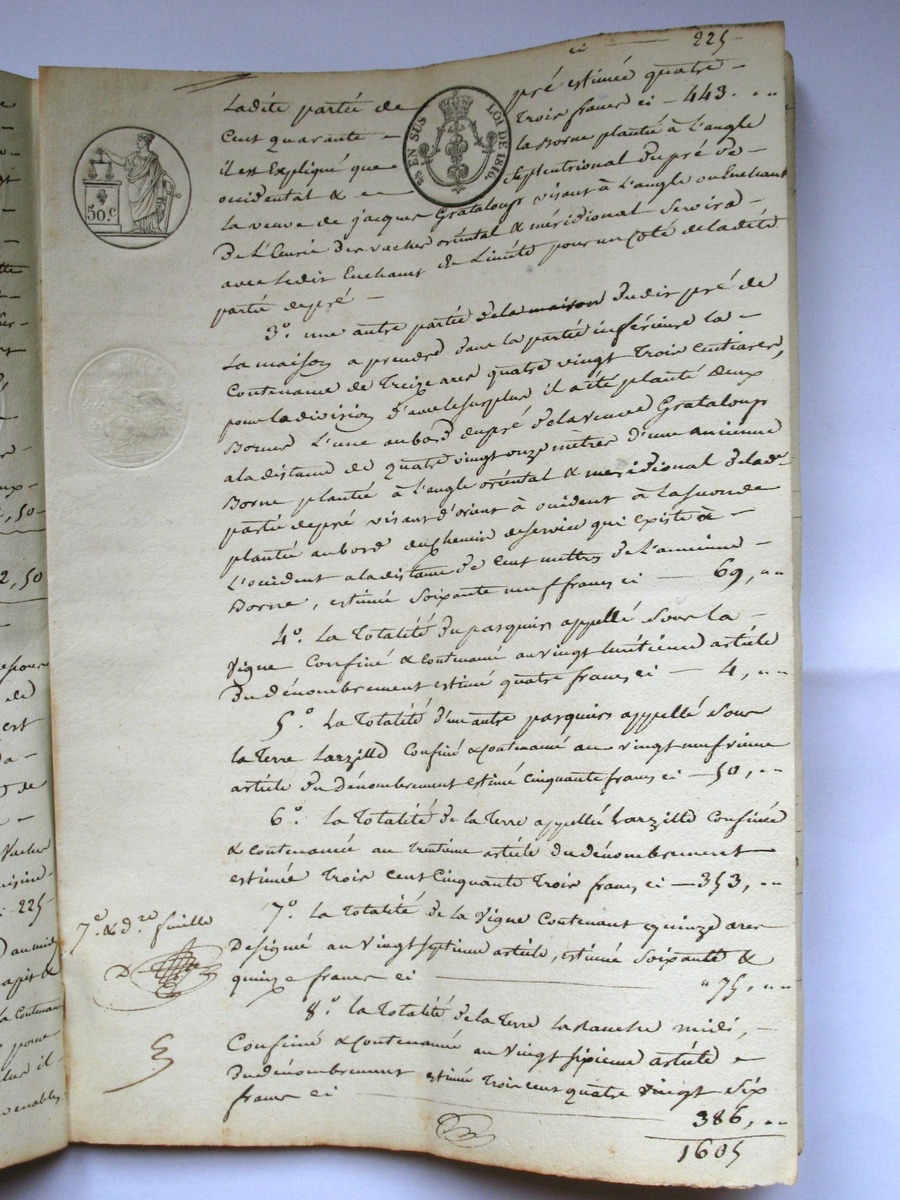 ci — 225
Ladite partie de pré estimée quatre
Cent quarante trois francs ci — 443. „
il est Expliqué que la Borne plantée à l'angle
occidental & Septentrional du pré de
la veuve de jacques Grataloup visant à l'angle ou Enchant
De L'Ecurie des vaches oriental & méridional Servira
avec ledit Enchant de Limite pour un Coté de ladite
partie de pré —
3.° une autre partie de la maison du dit pré de
La maison a prendre dans la partie inférieure la
Contenance de Treize ares quatre vingt Trois Centiares,
pour la division d'avec le surplus il a été planté Deux
Bornes L'une au bord du pré de la veuve Grataloup
a la distance de quatre vingt onze mètres d'une ancienne
Borne plantée à L'angle oriental & méridional de lad.
partie de pré visant d'orient à occident à la seconde
plantée au bord du Chemin de Service qui existe à
L'occident a la distance de Cent mettres de L'ancienne
Borne, estimée Soixante neuf francs ci — 69, „
4.° La Totalité du pasquier appellé Sous la
Vigne Confiné & Contenancé au vingt huitieme article
Du dénombrement estimé quatre francs ci — 4, „
5.° La Totalité d'un autre pasquier appellé Sous
la Terre Larzille Confiné & Contenancé au vingt neufvieme
article du dénombrement estimé Cinquante francs ci — 50, „
6.° la Totalité de la Terre appellée Larzille Confinée
& Contenancée au Trentieme article du dénombrement
estimée Trois Cent Cinquante Trois francs ci — 353, „
7.° & d.re feuille
7.° La Totalité de la Vigne Contenant quinze ares
Designé au Vingt septieme article, estimée Soixante &
quinze francs ci — " 75, „
8.° la Totalité de la Terre la Blanche midi,
Confinée & Contenancée au Vingt sixieme article
Du dénombrement estimée Trois cent quatre vingt Six
francs ci — 386, „
1605
50.c
EN SUS
LOI DE 1816.